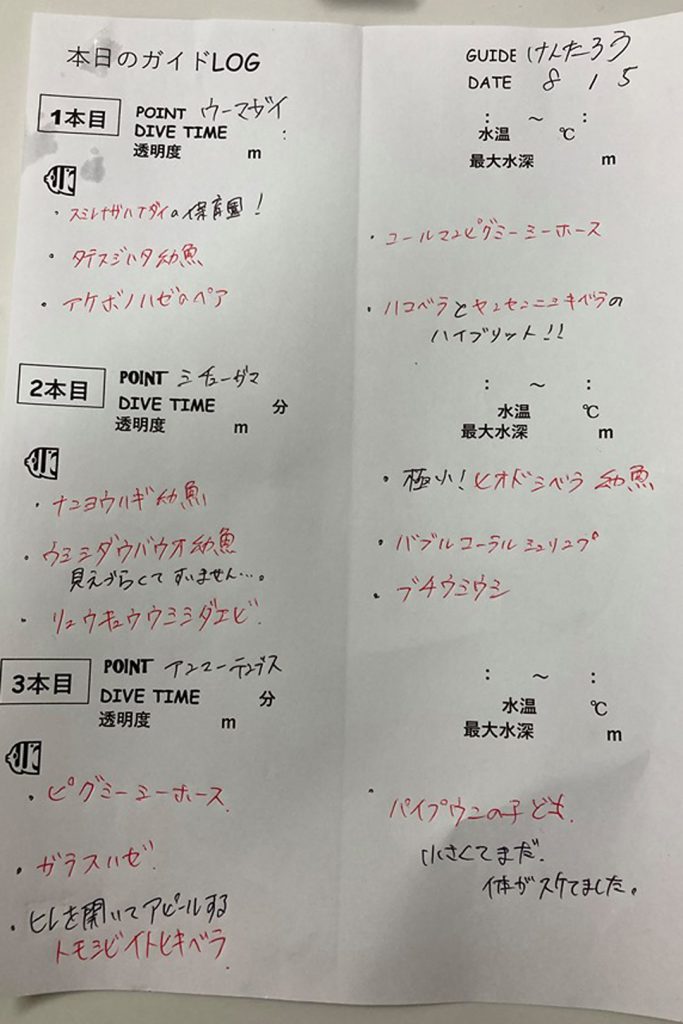 本日のガイドLOG
GUIDE けんたろう
DATE 8 15
1本目
POINT ウーマガイ
DIVE TIME :
透明度 m
: ～ :
水温 ℃
最大水深 m
・スミレナガハナダイの保育園!
・タテスジハタ幼魚
・アケボノハゼのペア
・コールマンピグミーシーホース
・ハコベラとヤンセンニシキベラの
ハイブリット!!
2本目
POINT シチューガマ
DIVE TIME 分
透明度 m
: ～ :
水温 ℃
最大水深 m
・ナンヨウハギ幼魚
・ウミシダウバウオ幼魚
見えづらくてすいません…。
・リュウキュウウミシダエビ
・極小!ヒオドシベラ幼魚
・バブルコーラルシュリンプ
・ブチウミウシ
3本目
POINT アンマーテンブス
DIVE TIME 分
透明度 m
: ～ :
水温 ℃
最大水深 m
・ピグミーシーホース
・ガラスハゼ
・ヒレを開いてアピールする
トモシビイトヒキベラ
・パイプウニの子ども
小さくてまだ
体がスケてました。